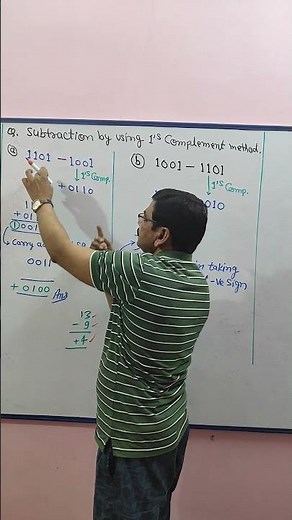 Q. Subtraction by using 1's Complement method.
(a) 1101 - 1001
↓1's Comp.
+ 0110
+ 01
1 001
Carry
0011
+ 0100 Ans
13
- 9
+4
(b) 1001 - 1101
↓1's Comp.
010
taking
-ve Sign